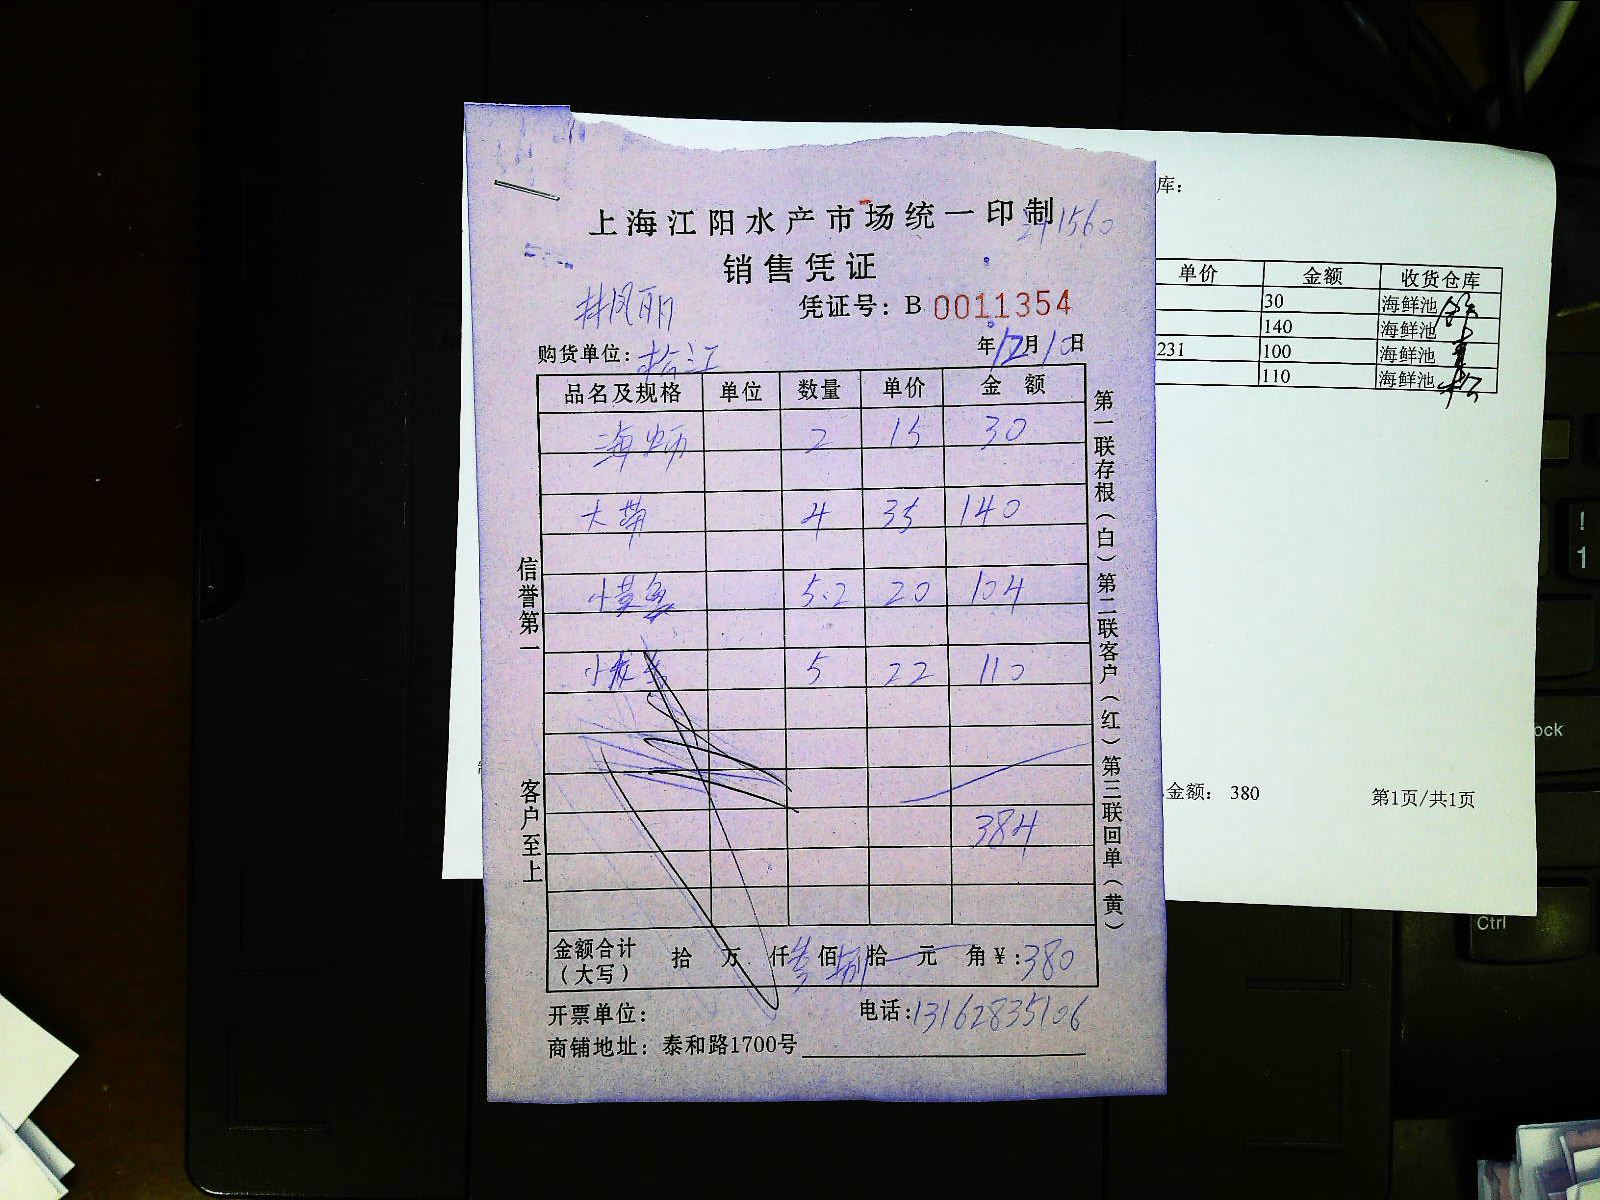 上海江阳水产市场统一印制
241560
销售凭证
凭证号：B 0011354
林凤丽
购货单位：松江
年12月10日
品名及规格 单位 数量 单价 金额
海蛎 2 15 30
大带 4 35 140
小黄鱼 5.2 20 104
5 22 110
384
金额合计（大写） 拾 万 仟叁佰捌拾 元 角￥:380
开票单位：
电话:13162835106
商铺地址：泰和路1700号
信誉第一
客户至上
第一联存根（白）第二联客户（红）第三联回单（黄）
库：
单价 金额 收货仓库
30 海鲜池
140 海鲜池
231 100 海鲜池
110 海鲜池
金额： 380
第1页/共1页
!
1
ock
Ctrl